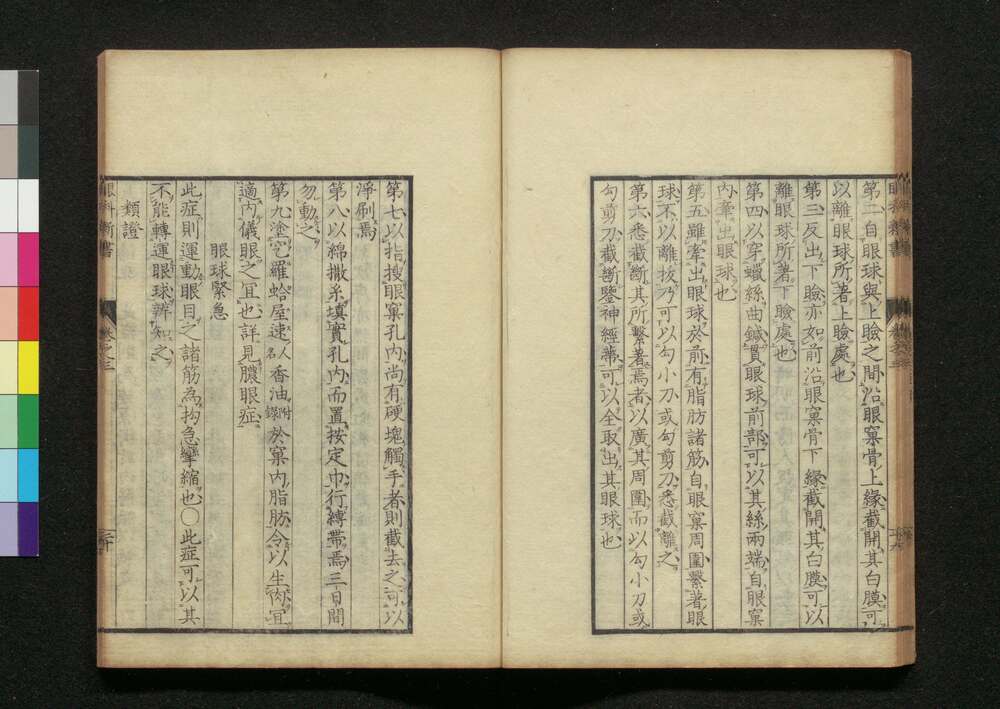 第二自眼球與上瞼之間沿眼窠骨上緣截開其白膜可
以離眼球所著上瞼處也
第三反出下瞼亦如前沿眼窠骨下緣截開其白膜可以
離眼球所著下瞼處也
第四以穿蠟絲曲鍼貫眼球前部可以其絲兩端自眼窠
内牽出眼球也
第五雖牽出眼球於前有脂肪諸筋自眼窠周圍繫著眼
球不以離拔乃可以勾小刀或勾剪刀悉截離之
第六悉截斷其所繫著焉者以廣其周圍而以勾小刀或
勾剪刀截斷鑒神經蒂可以全取出其眼球也
眼科新書
卷之三
第七以指搜眼窠孔内尚有硬塊觸手者則截去之可以
淨刷焉
第八以綿撒糸填實孔内而置按定巾行縛帶焉三日間
勿動之
第九塗窊羅蛤屋速人名香油附錄於窠内脂肪令以生肉宜
適内儀眼之宜也詳見膿眼症
眼球緊急
此症則運動眼目之諸筋為拘急攣縮也〇此症可以其
不能轉運眼球辨知之
類證
眼科新書
卷之三